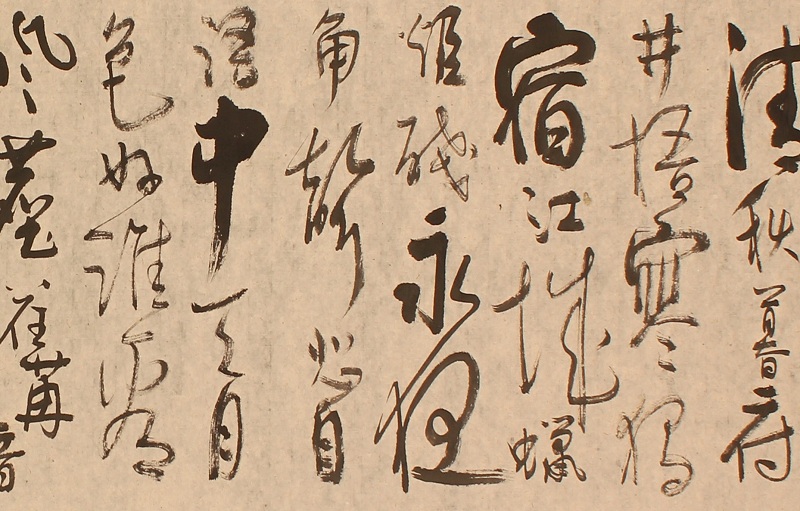 清秋暮府
井梧寒獨
宿江城蠟
炬殘永夜
角聲悲自
語中天月
色好誰看
風塵荏苒音